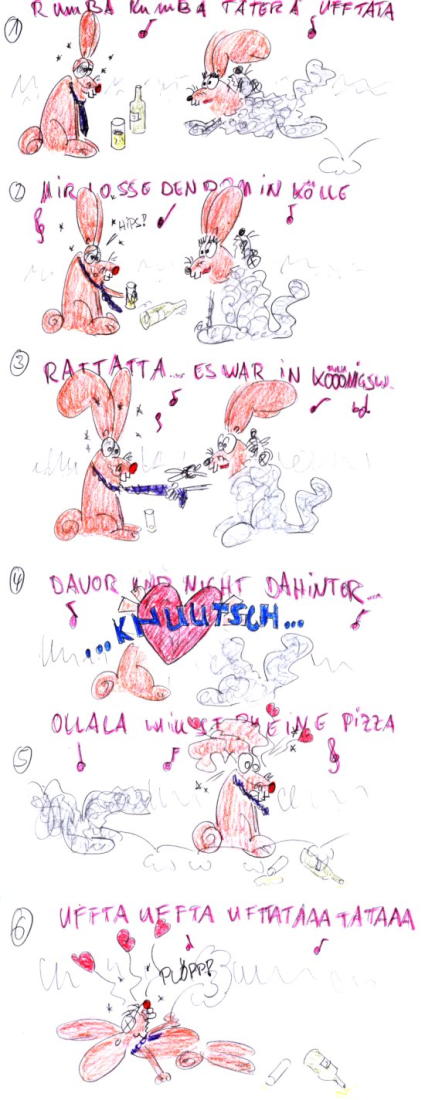 ①
RUMBA RUMBA TATERÄ UFFTATA
②
MIR LOSSE DEN DOM IN KÖLLE
HIPS!
③
RATTATTA... ES WAR IN KÖÖÖNIGSW.
④
DAVOR UND NICHT DAHINTER...
...KNUUTSCH...
⑤
OLLALA WILLSE EINE PIZZA
⑥
UFFTA UFFTA UFTATAAA TATAAA
PLÖPPP!